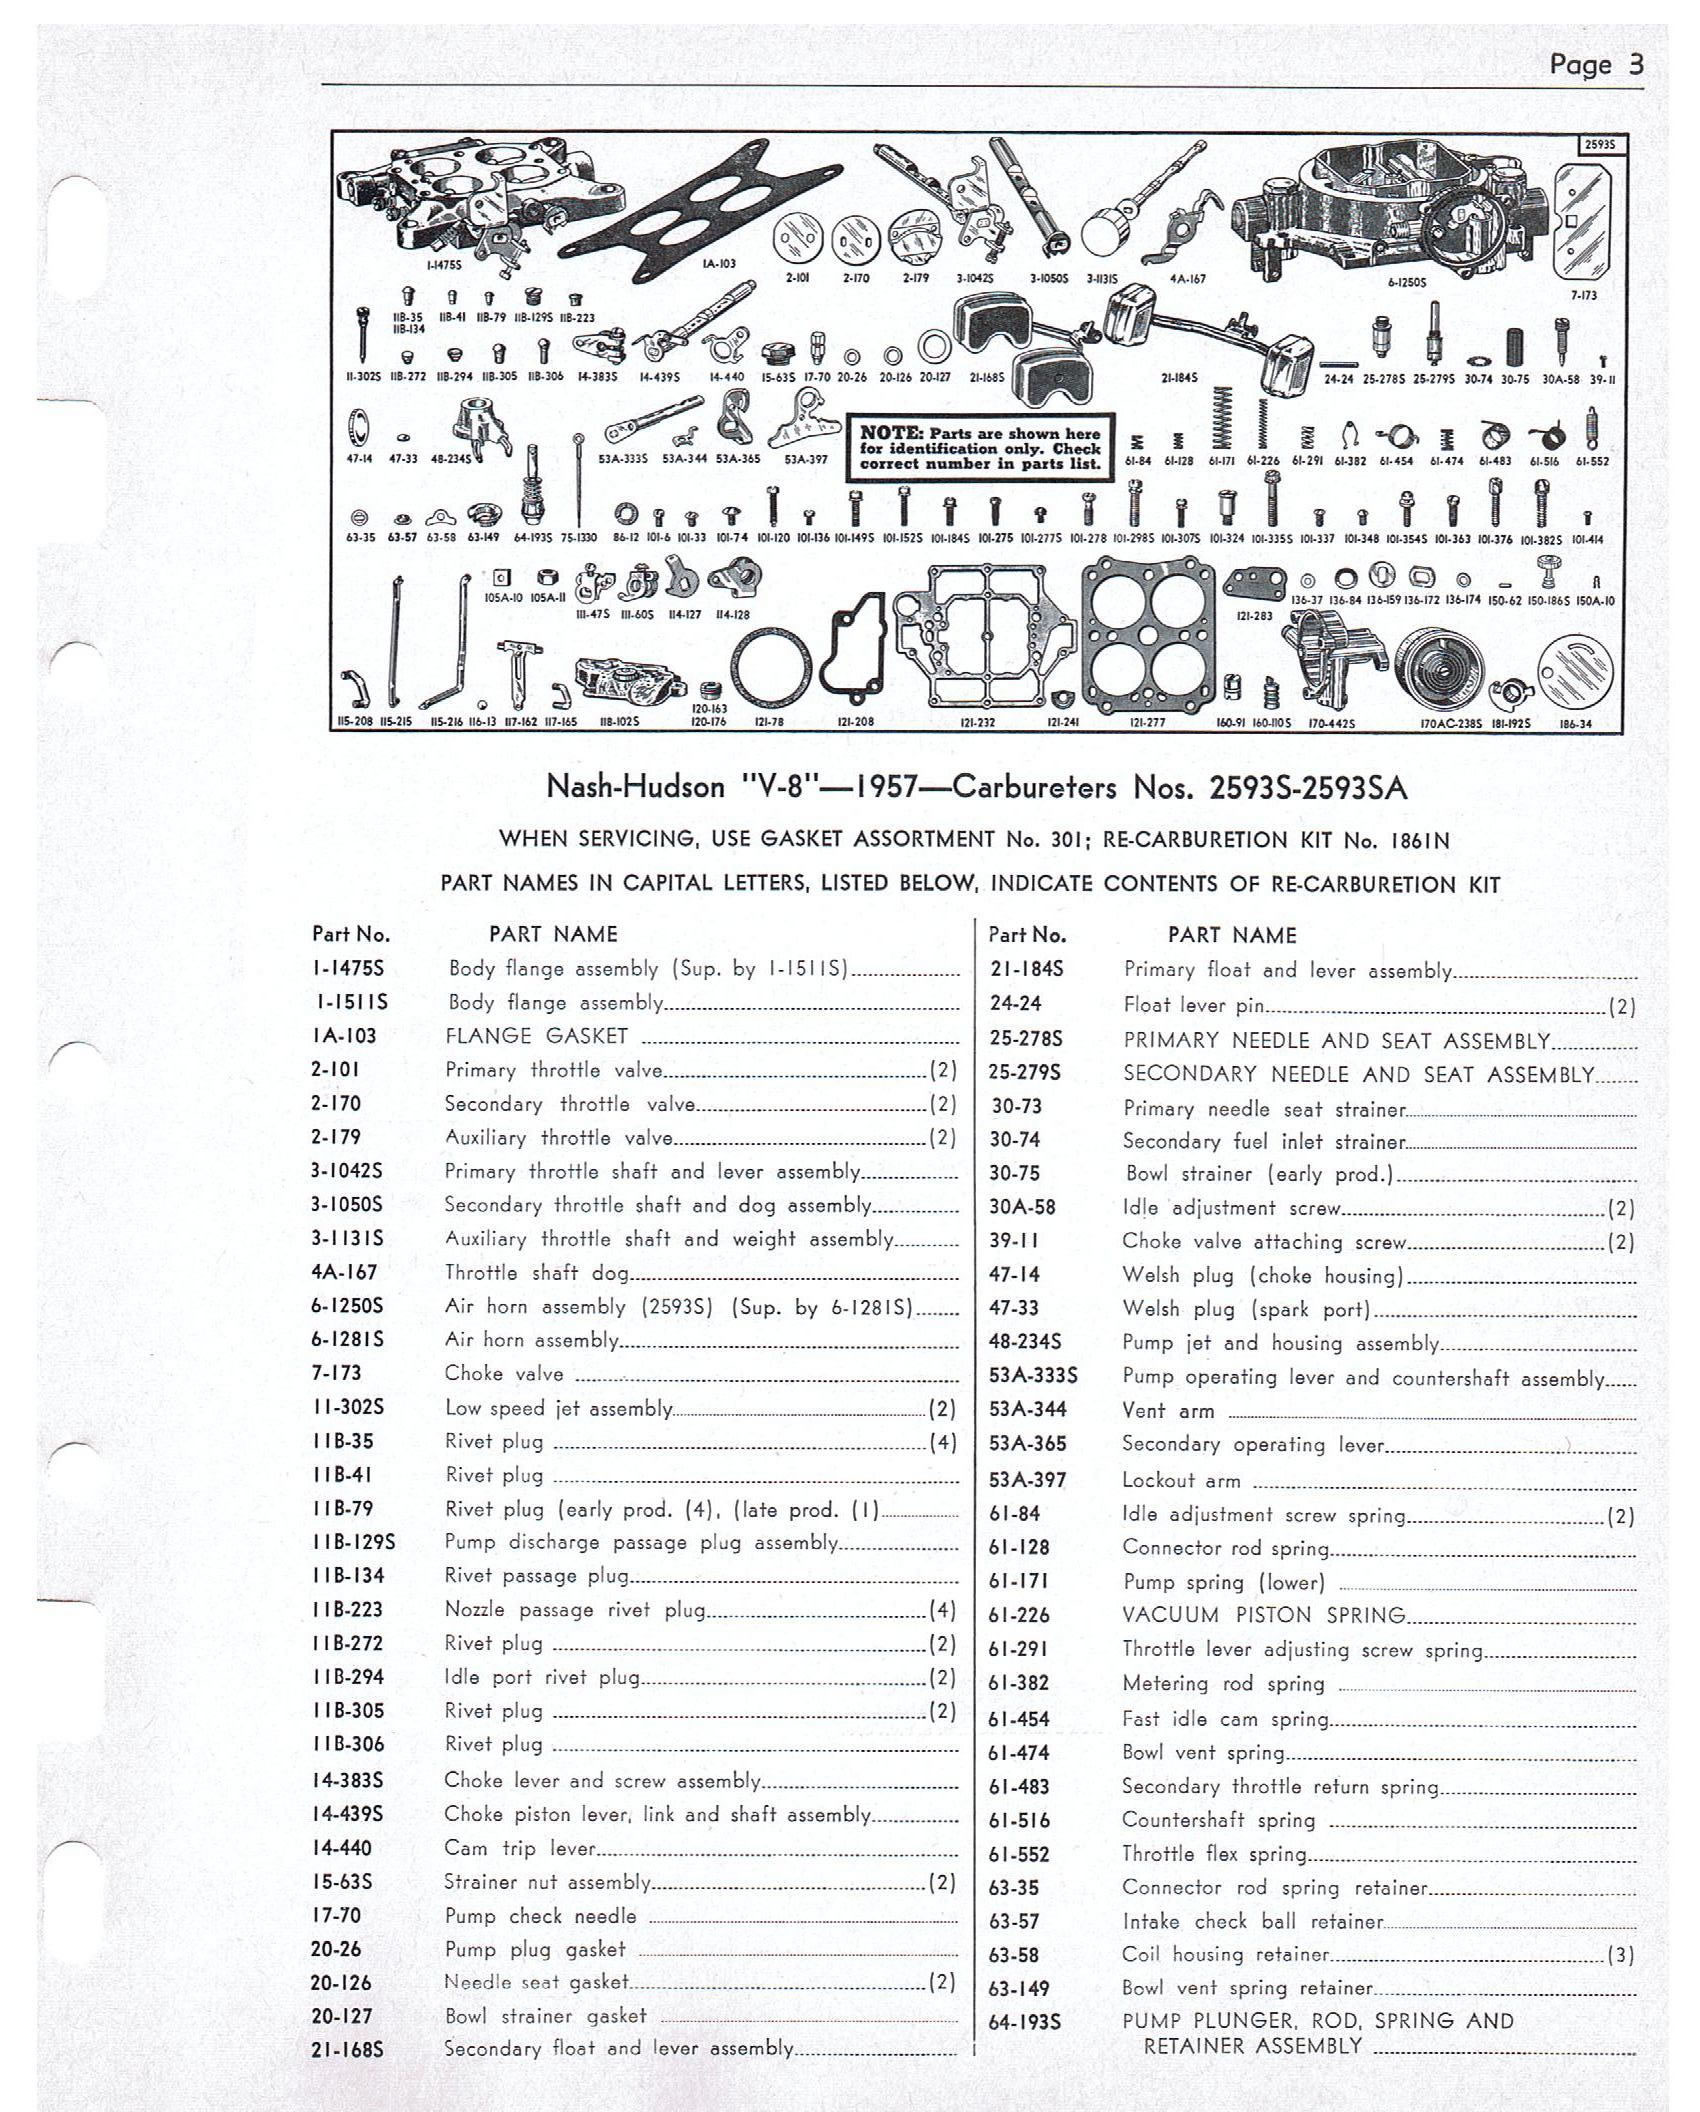 Page 3
2593S
1-1475S
1A-103
2-101
2-170
2-179
3-1042S
3-1050S
3-1131S
4A-167
6-1250S
7-173
11B-35 11B-41 11B-79 11B-129S 11B-223
11B-134
11-302S 11B-272 11B-294 11B-305 11B-306 14-383S 14-439S 14-440 15-63S 17-70 20-26 20-126 20-127 21-168S 21-184S 24-24 25-278S 25-279S 30-74 30-75 30A-58 39-11
NOTE: Parts are shown here
for identification only. Check
correct number in parts list.
47-14 47-33 48-234S 53A-333S 53A-344 53A-365 53A-397 61-84 61-128 61-171 61-226 61-291 61-382 61-454 61-474 61-483 61-516 61-552
63-35 63-57 63-58 63-149 64-193S 75-1330 86-12 101-6 101-33 101-74 101-120 101-136 101-149S 101-152S 101-184S 101-275 101-277S 101-278 101-298S 101-307S 101-324 101-335S 101-337 101-348 101-354S 101-363 101-376 101-382S 101-414
105A-10 105A-11 111-47S 111-60S 114-127 114-128 121-283 136-37 136-84 136-159 136-172 136-174 150-62 150-186S 150A-10
115-208 115-215 115-216 116-13 117-162 117-165 118-102S 120-163
120-176 121-78 121-208 121-232 121-241 121-277 160-91 160-110S 170-442S 170AC-238S 181-192S 186-34
Nash-Hudson "V-8"—1957—Carbureters Nos. 2593S-2593SA
WHEN SERVICING, USE GASKET ASSORTMENT No. 301; RE-CARBURETION KIT No. 1861N
PART NAMES IN CAPITAL LETTERS, LISTED BELOW, INDICATE CONTENTS OF RE-CARBURETION KIT
Part No. PART NAME
1-1475S Body flange assembly (Sup. by 1-1511S)
1-1511S Body flange assembly
1A-103 FLANGE GASKET
2-101 Primary throttle valve (2)
2-170 Secondary throttle valve (2)
2-179 Auxiliary throttle valve (2)
3-1042S Primary throttle shaft and lever assembly
3-1050S Secondary throttle shaft and dog assembly
3-1131S Auxiliary throttle shaft and weight assembly
4A-167 Throttle shaft dog
6-1250S Air horn assembly (2593S) (Sup. by 6-1281S)
6-1281S Air horn assembly
7-173 Choke valve
11-302S Low speed jet assembly (2)
11B-35 Rivet plug (4)
11B-41 Rivet plug
11B-79 Rivet plug (early prod. (4), (late prod. (1)
11B-129S Pump discharge passage plug assembly
11B-134 Rivet passage plug
11B-223 Nozzle passage rivet plug (4)
11B-272 Rivet plug (2)
11B-294 Idle port rivet plug (2)
11B-305 Rivet plug (2)
11B-306 Rivet plug
14-383S Choke lever and screw assembly
14-439S Choke piston lever, link and shaft assembly
14-440 Cam trip lever
15-63S Strainer nut assembly (2)
17-70 Pump check needle
20-26 Pump plug gasket
20-126 Needle seat gasket (2)
20-127 Bowl strainer gasket
21-168S Secondary float and lever assembly
Part No. PART NAME
21-184S Primary float and lever assembly
24-24 Float lever pin (2)
25-278S PRIMARY NEEDLE AND SEAT ASSEMBLY
25-279S SECONDARY NEEDLE AND SEAT ASSEMBLY
30-73 Primary needle seat strainer
30-74 Secondary fuel inlet strainer
30-75 Bowl strainer (early prod.)
30A-58 Idle adjustment screw (2)
39-11 Choke valve attaching screw (2)
47-14 Welsh plug (choke housing)
47-33 Welsh plug (spark port)
48-234S Pump jet and housing assembly
53A-333S Pump operating lever and countershaft assembly
53A-344 Vent arm
53A-365 Secondary operating lever
53A-397 Lockout arm
61-84 Idle adjustment screw spring (2)
61-128 Connector rod spring
61-171 Pump spring (lower)
61-226 VACUUM PISTON SPRING
61-291 Throttle lever adjusting screw spring
61-382 Metering rod spring
61-454 Fast idle cam spring
61-474 Bowl vent spring
61-483 Secondary throttle return spring
61-516 Countershaft spring
61-552 Throttle flex spring
63-35 Connector rod spring retainer
63-57 Intake check ball retainer
63-58 Coil housing retainer (3)
63-149 Bowl vent spring retainer
64-193S PUMP PLUNGER, ROD, SPRING AND
RETAINER ASSEMBLY